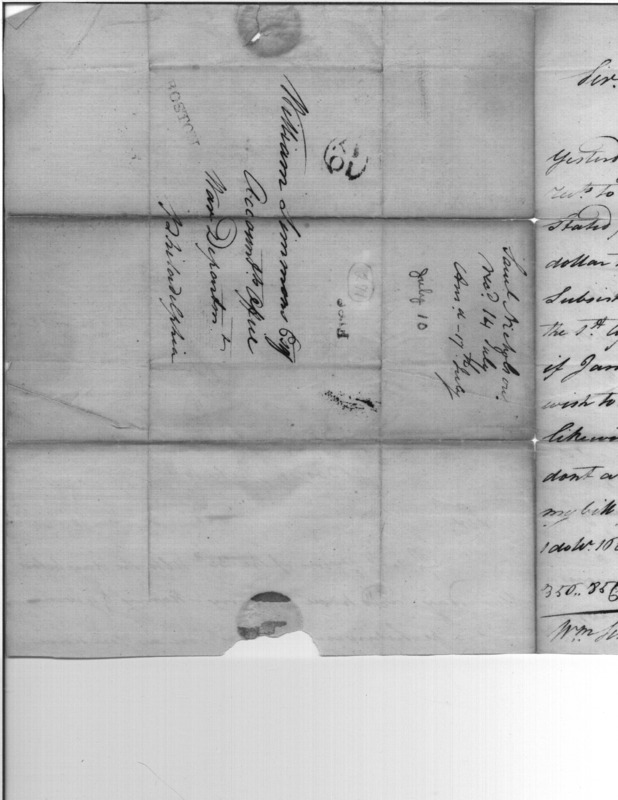 BOSTON
William Simmons Esq
Accountts Office
War Departmt
Philadelphia
Saml Nicholson
Recd 14 July
Ansd - 17th July
July 10
Sir.
Yesterd
to
Stated
dollar
Subsist
the 1st
if Jan
wish to
likewi
dont a
my bill
350..356
Wm